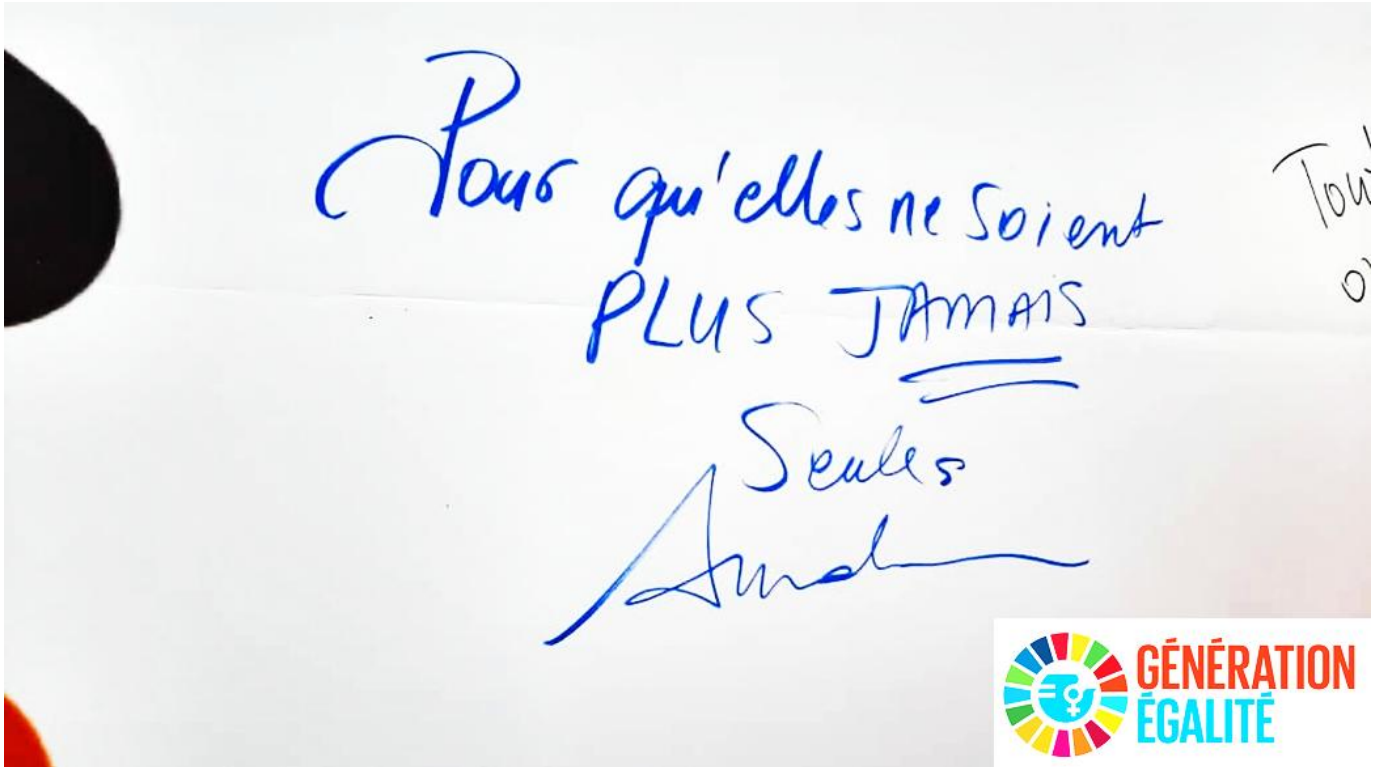 Pour qu'elles ne soient
PLUS JAMAIS
Seules
GÉNÉRATION
ÉGALITÉ